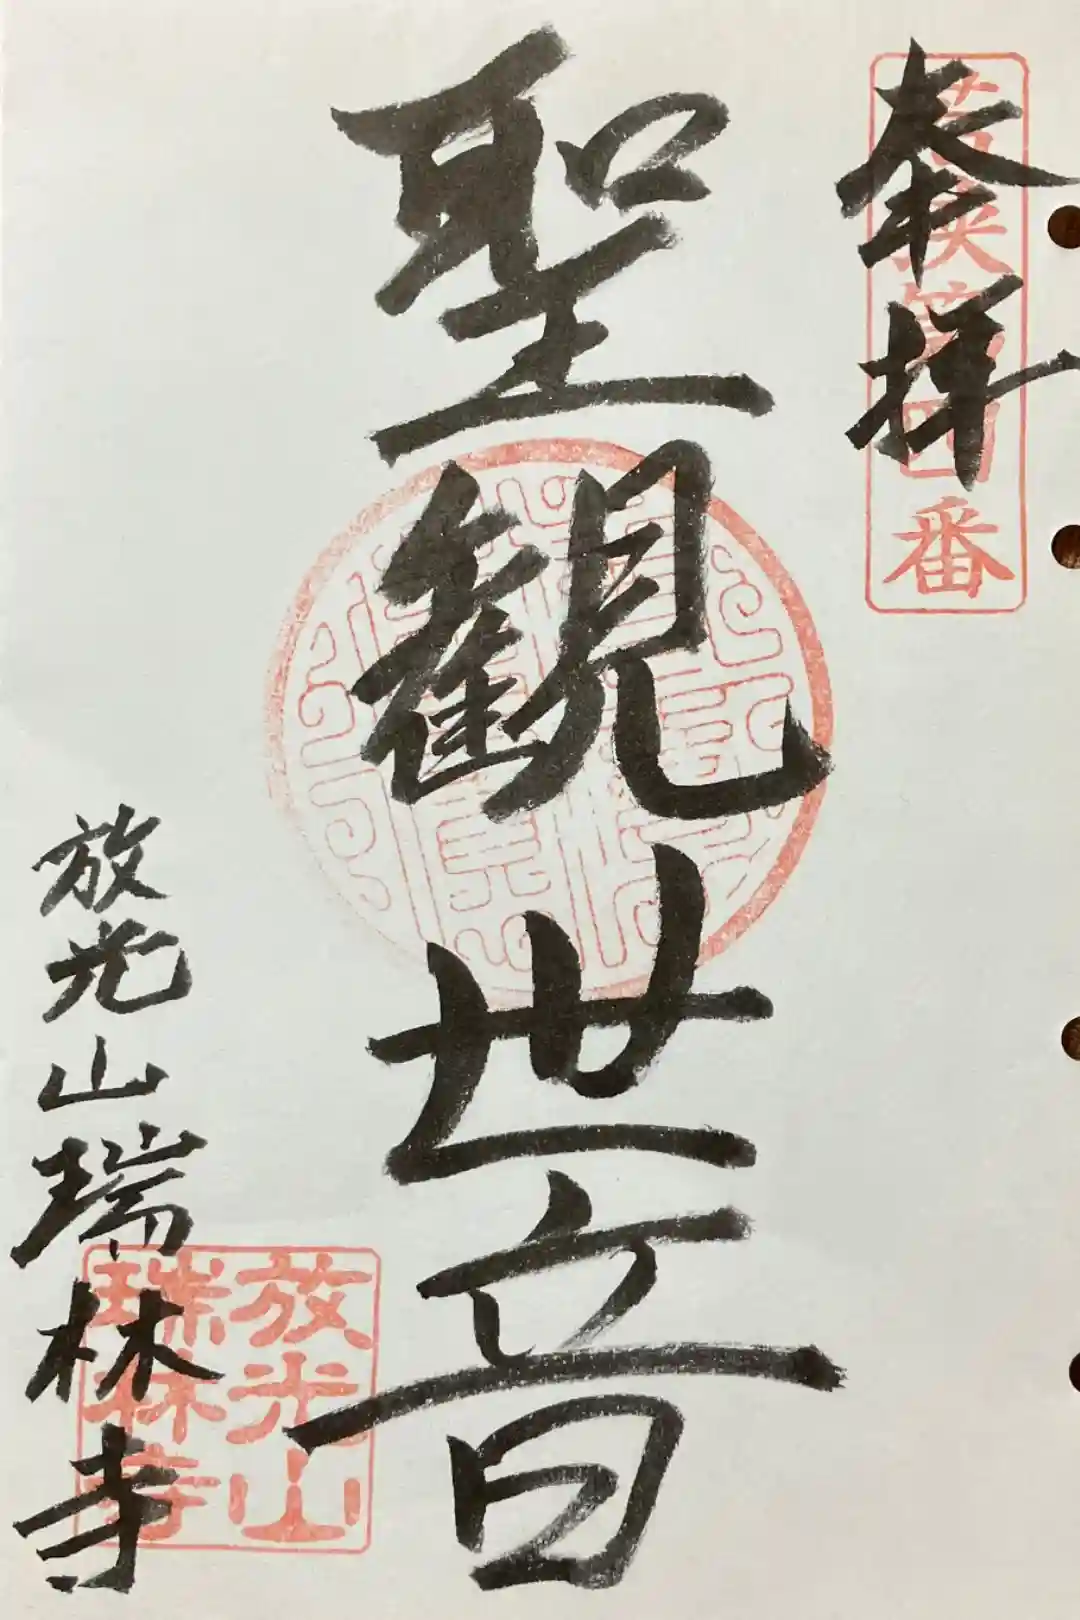 奉拝
若狭第四番
聖観世音
放光山瑞林寺
放光山
瑞林寺